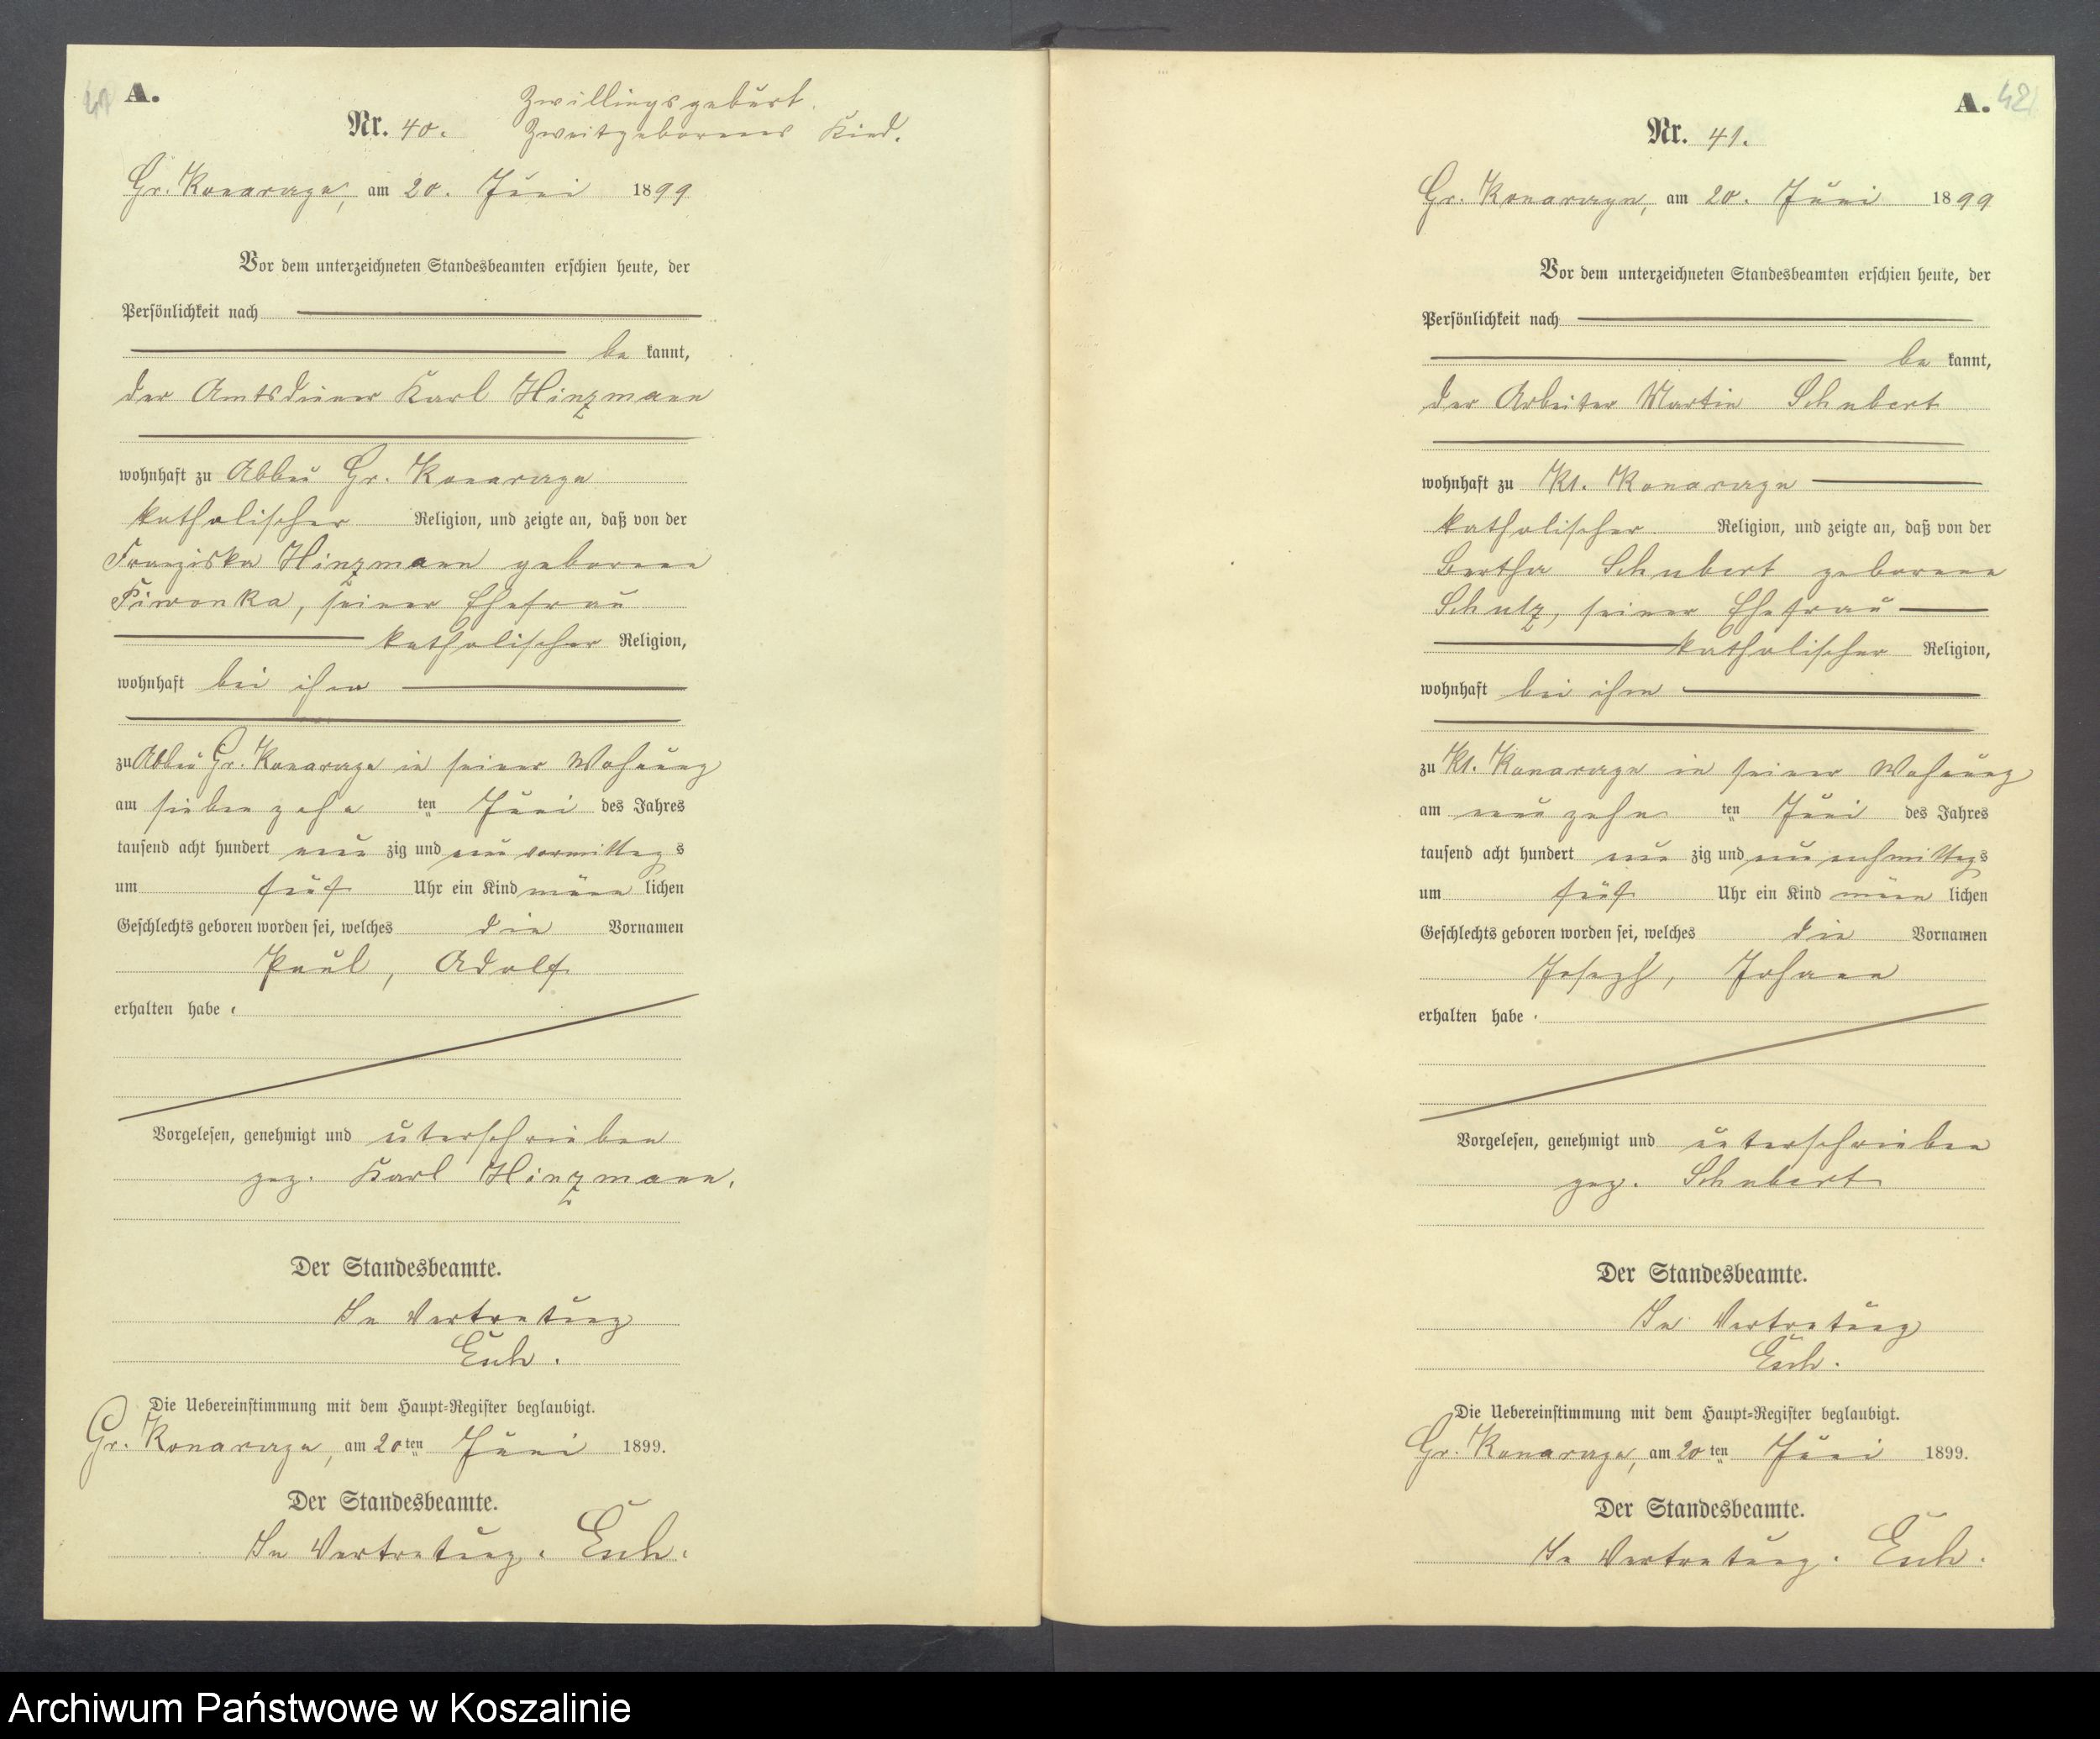 41
A.
Zwillingsgeburt.
Nr. 40. Zweitgeborenes Kind.
Gr. Konarczyn, am 20. Juni 1899
Vor dem unterzeichneten Standesbeamten erschien heute, der
Persönlichkeit nach
be kannt,
der Amtsdiener Karl Hinzmann
wohnhaft zu Abbau Gr. Konarczyn
katholischer Religion, und zeigte an, daß von der
Franziska Hinzmann geborene
Piwonka, seiner Ehefrau
katholischer Religion,
wohnhaft bei ihm
zu Abbau Gr. Konarczyn in seiner Wohnung
am siebenzehn ten Juni des Jahres
tausend acht hundert neun zig und neun vormittag s
um fünf Uhr ein Kind männ lichen
Geschlechts geboren worden sei, welches die Vornamen
Paul, Adolf
erhalten habe.
Vorgelesen, genehmigt und unterschrieben
gez. Karl Hinzmann.
Der Standesbeamte.
In Vertretung
Die Uebereinstimmung mit dem Haupt-Register beglaubigt.
Gr. Konarczyn, am 20 ten Juni 1899.
Der Standesbeamte.
In Vertretung.
A. 42
Nr. 41.
Gr. Konarczyn, am 20. Juni 1899
Vor dem unterzeichneten Standesbeamten erschien heute, der
Persönlichkeit nach
be kannt,
der Arbeiter Martin Schubert
wohnhaft zu Kl. Konarczyn
katholischer Religion, und zeigte an, daß von der
Bertha Schubert geborene
Schulz, seiner Ehefrau
katholischer Religion,
wohnhaft bei ihm
zu Kl. Konarczyn in seiner Wohnung
am neunzehn ten Juni des Jahres
tausend acht hundert neun zig und neun nachmittags
um fünf Uhr ein Kind männ lichen
Geschlechts geboren worden sei, welches die Vornamen
Joseph, Johann
erhalten habe.
Vorgelesen, genehmigt und unterschrieben
gez. Schubert
Der Standesbeamte.
In Vertretung
Die Uebereinstimmung mit dem Haupt-Register beglaubigt.
Gr. Konarczyn, am 20 ten Juni 1899.
Der Standesbeamte.
In Vertretung.
Archiwum Państwowe w Koszalinie